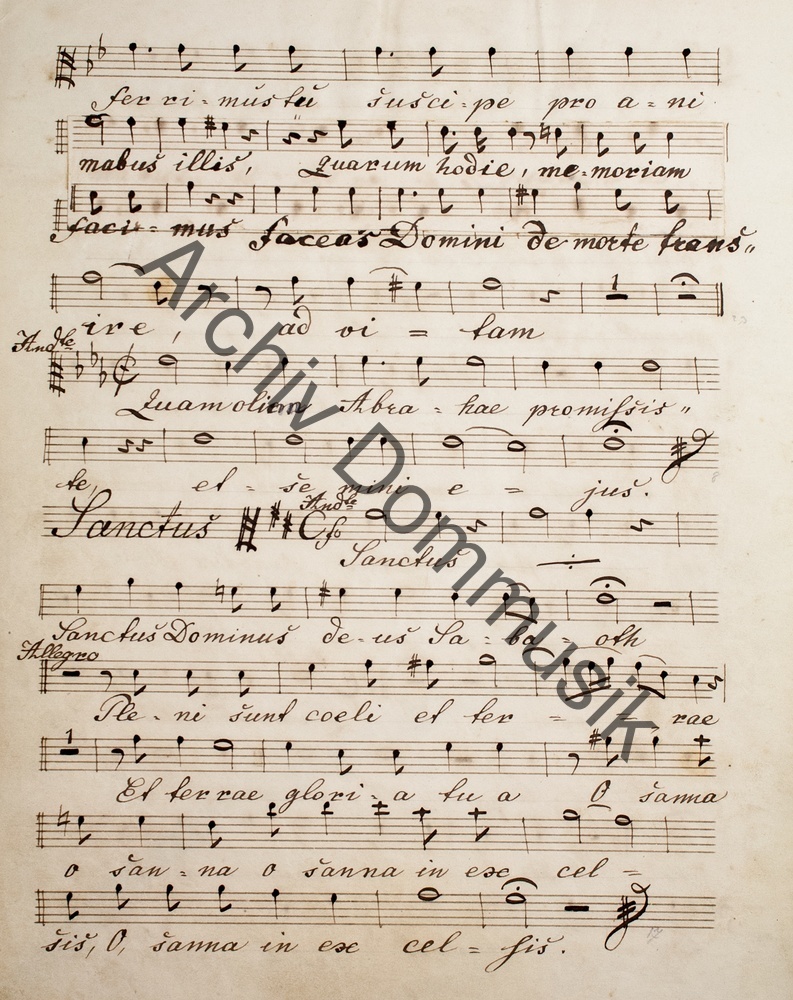 fer ri = mus tu susci - pe pro a = ni
mabus illis, quarum hodie, me = moriam
faci = mus faceas Domini de morte trans =
ire, ad vi = tam
Andte
Quam olim Abra = hae promissis "
te, et = se mini e = jus.
Andte
Sanctus C fo
Sanctus
Sanctus Dominus de = us Sa = ba = oth
Allegro
Ple - ni sunt coeli et ter = = rae
1
Et terrae glori = a tu a O sanna
o san = na o sanna in ex cel =
sis, O, sanna in ex cel = sis.
Archiv Dommusik